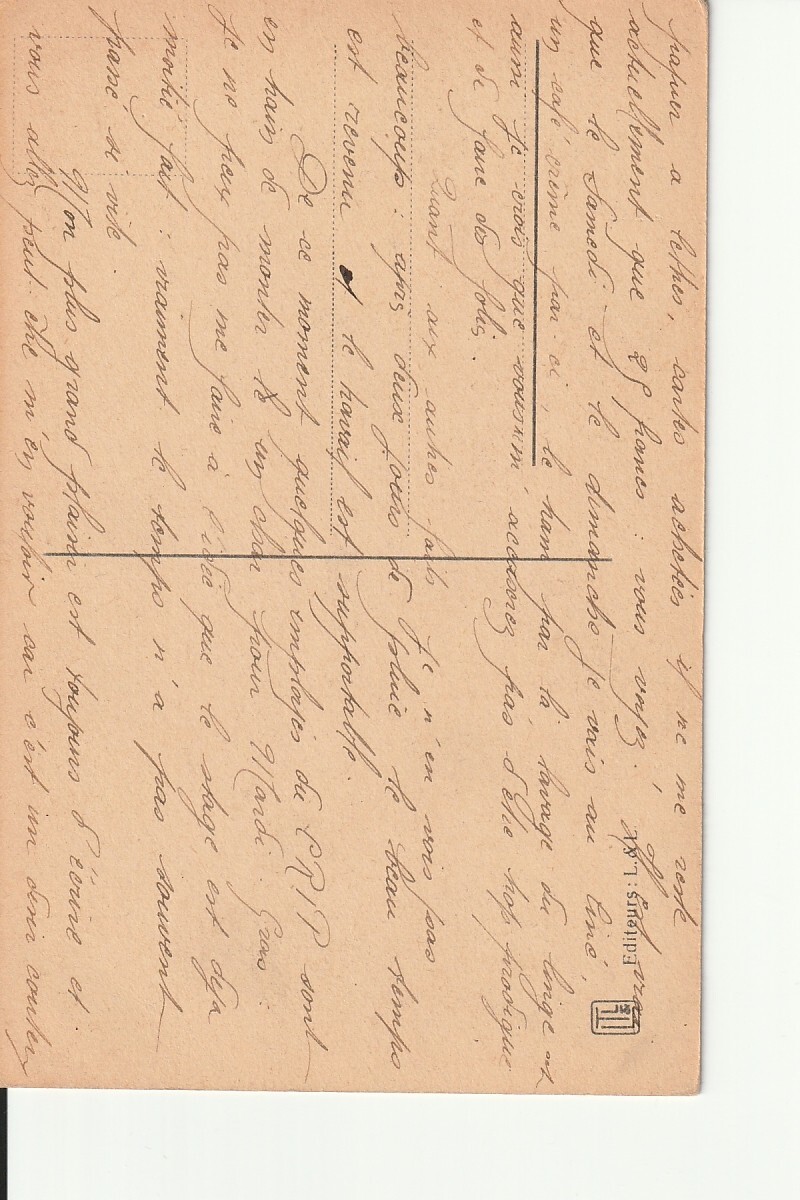 papier à lettres, cartes achetées il ne me reste
actuellement que 25 francs : vous voyez. Il est vrai
que le Samedi et le dimanche je vais au Ciné,
un café crème par-ci, le tram par là lavage du linge et
aussi je crois que vous m'accuserez pas d'être trop prodigue
et de faire des folies.
Quant aux autres fois je n'en vois pas
beaucoup : après deux jours de pluie le beau temps
est revenu et le travail est supportable.
De ce moment quelques employés du CRIP sont
en train de monter un char pour Mardi-Gras :
Je ne peux pas me faire à l'idée que le stage est déjà
moitié fait : vraiment le temps n'a pas souvent
passé si vite.
Mon plus grand plaisir est toujours d'écrire et
vous allez peut-être m'en vouloir car c'est un désir coûter
Editeurs : L.